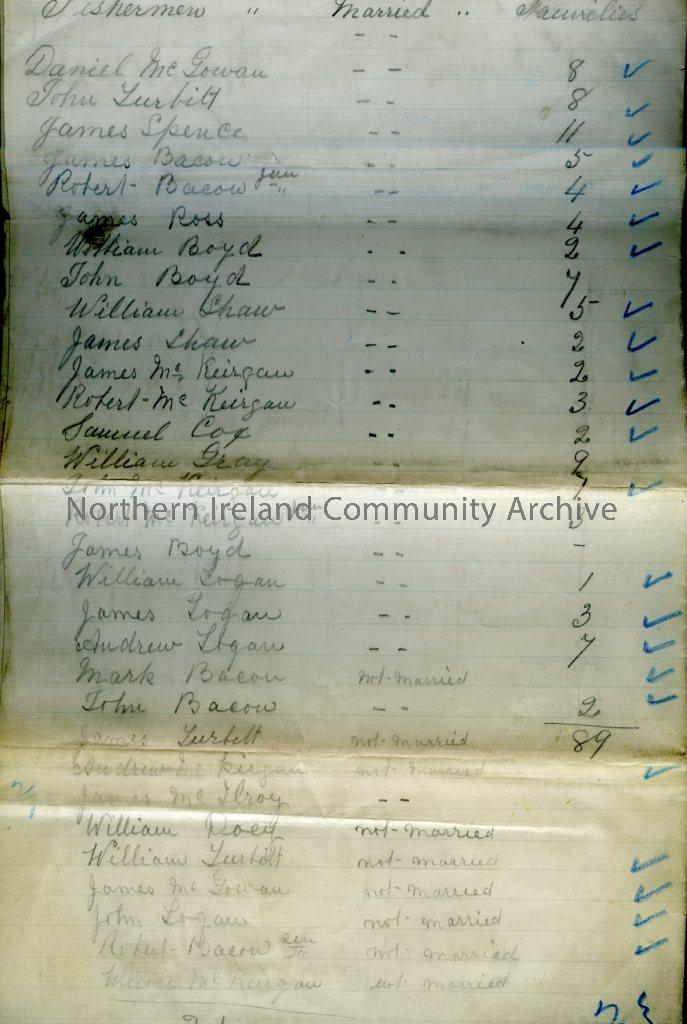 Fishermen " Married " Families
- -
Daniel McGowan - - 8 ✓
John Turbitt 8 ✓
James Spence - - 11 ✓
James Bacon - - 5 ✓
Robert Bacon Jun - - 4 ✓
James Ross - - 4 ✓
William Boyd - - 2 ✓
John Boyd - - 7
William Shaw - - 5 ✓
James Shaw - - 2 ✓
James Mc Keirgan - - 2 ✓
Robert Mc Keirgan - - 3 ✓
Samuel Cox - - 2 ✓
William Gray - - 9
John Mc Keirgan - - 7 ✓
Northern Ireland Community Archive
Robert Mc Keirgan - - 3
James Boyd - - -
William Logan - - 1 ✓
James Logan - - 3 ✓
Andrew Logan - - 7 ✓
Mark Bacon not-married ✓
John Bacon - - 2 ✓
James Turbitt not-married 89
Andrew Mc Kirgan not-married ✓
James Mc Ilroy - -
William not-married
William Turbitt not-married ✓
James Mc Gowan not-married ✓
John Logan not married ✓
Robert-Bacon sen not married ✓
Mc Keirgan not married